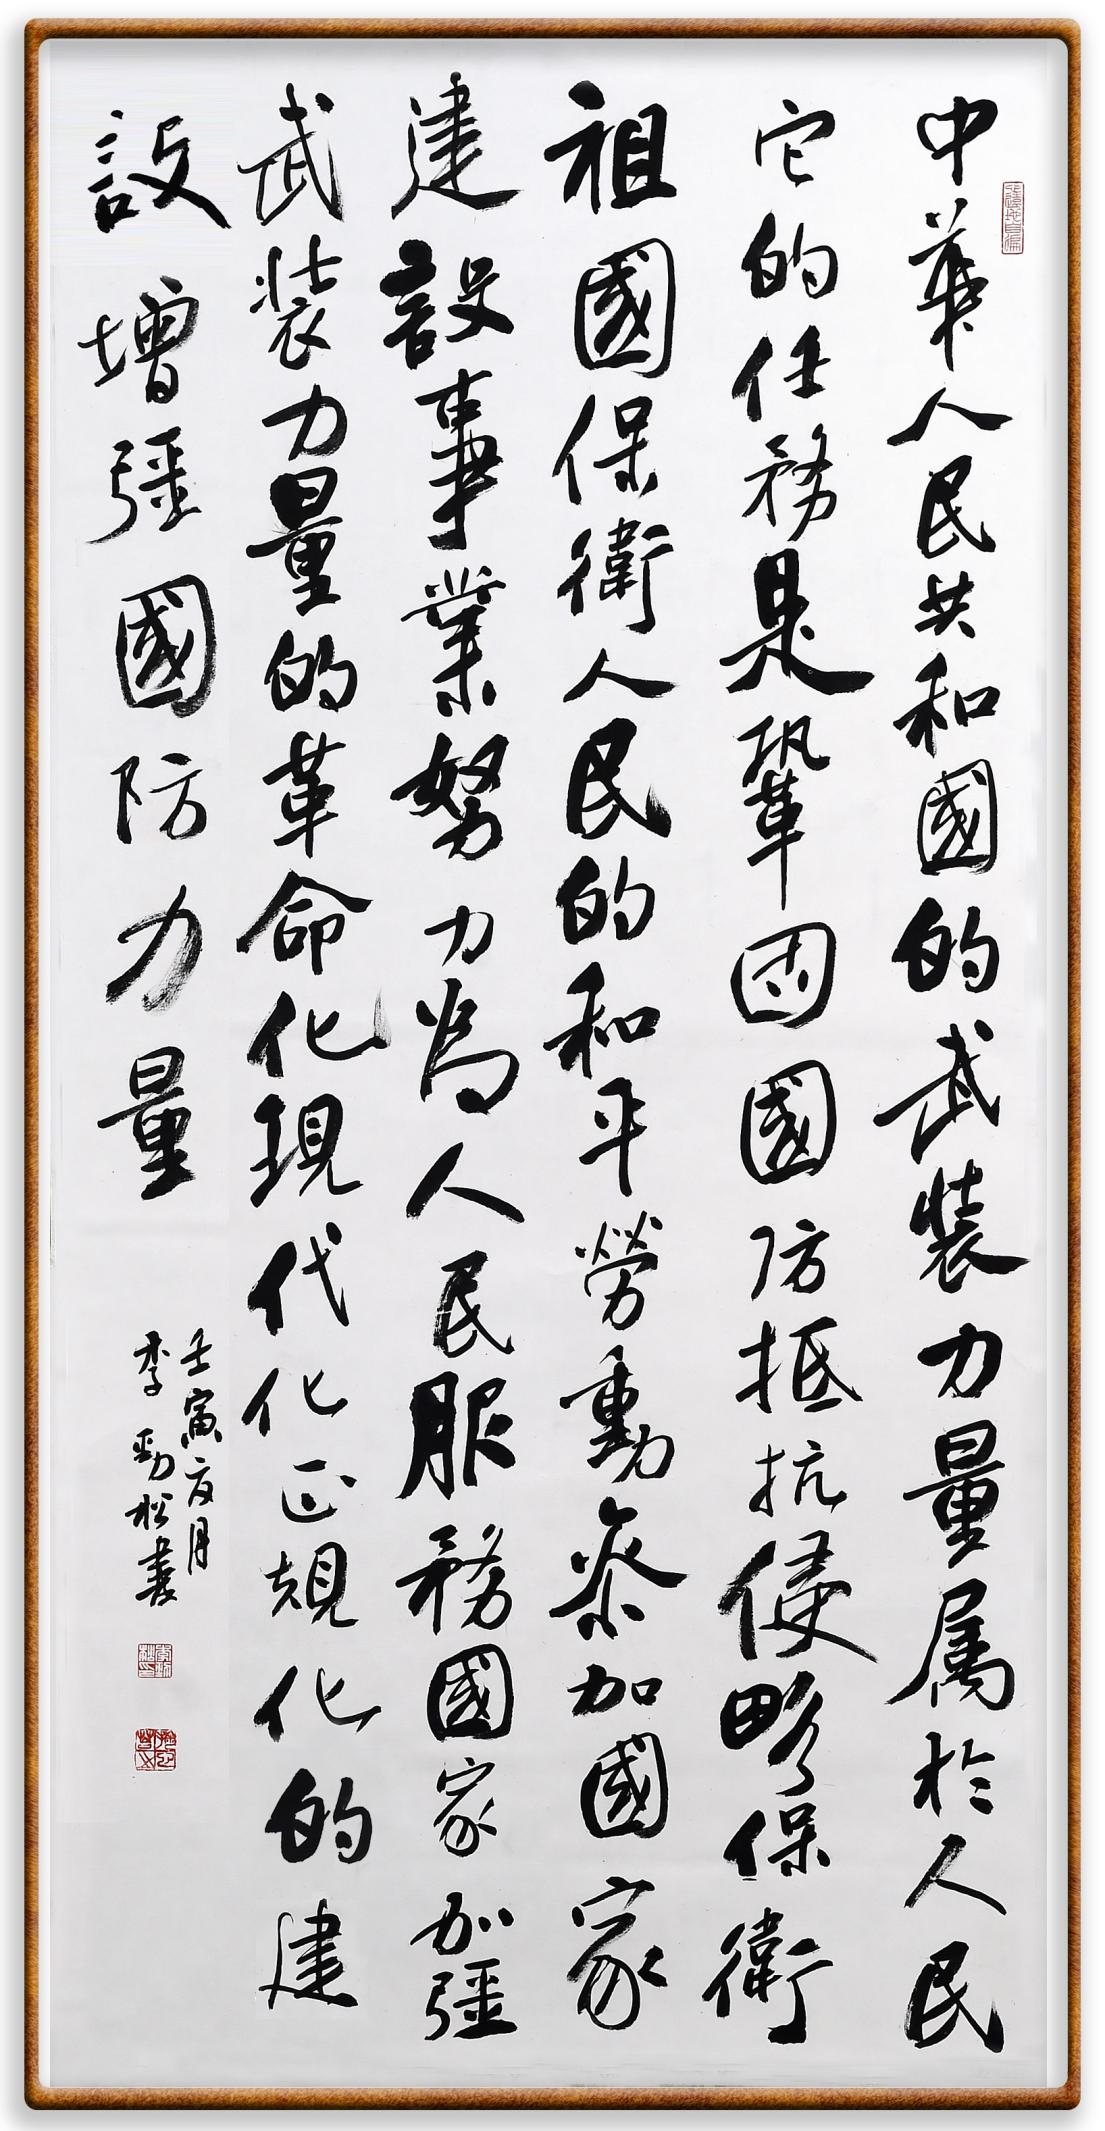 中華人民共和國的武裝力量属於人民
它的任務是鞏固國防抵抗侵略保衛
祖國保衛人民的和平勞動參加國家
建設事業努力為人民服務國家加彊
武裝力量的革命化現代化正規化的建
設增彊國防力量
壬寅夜月
李勁松書